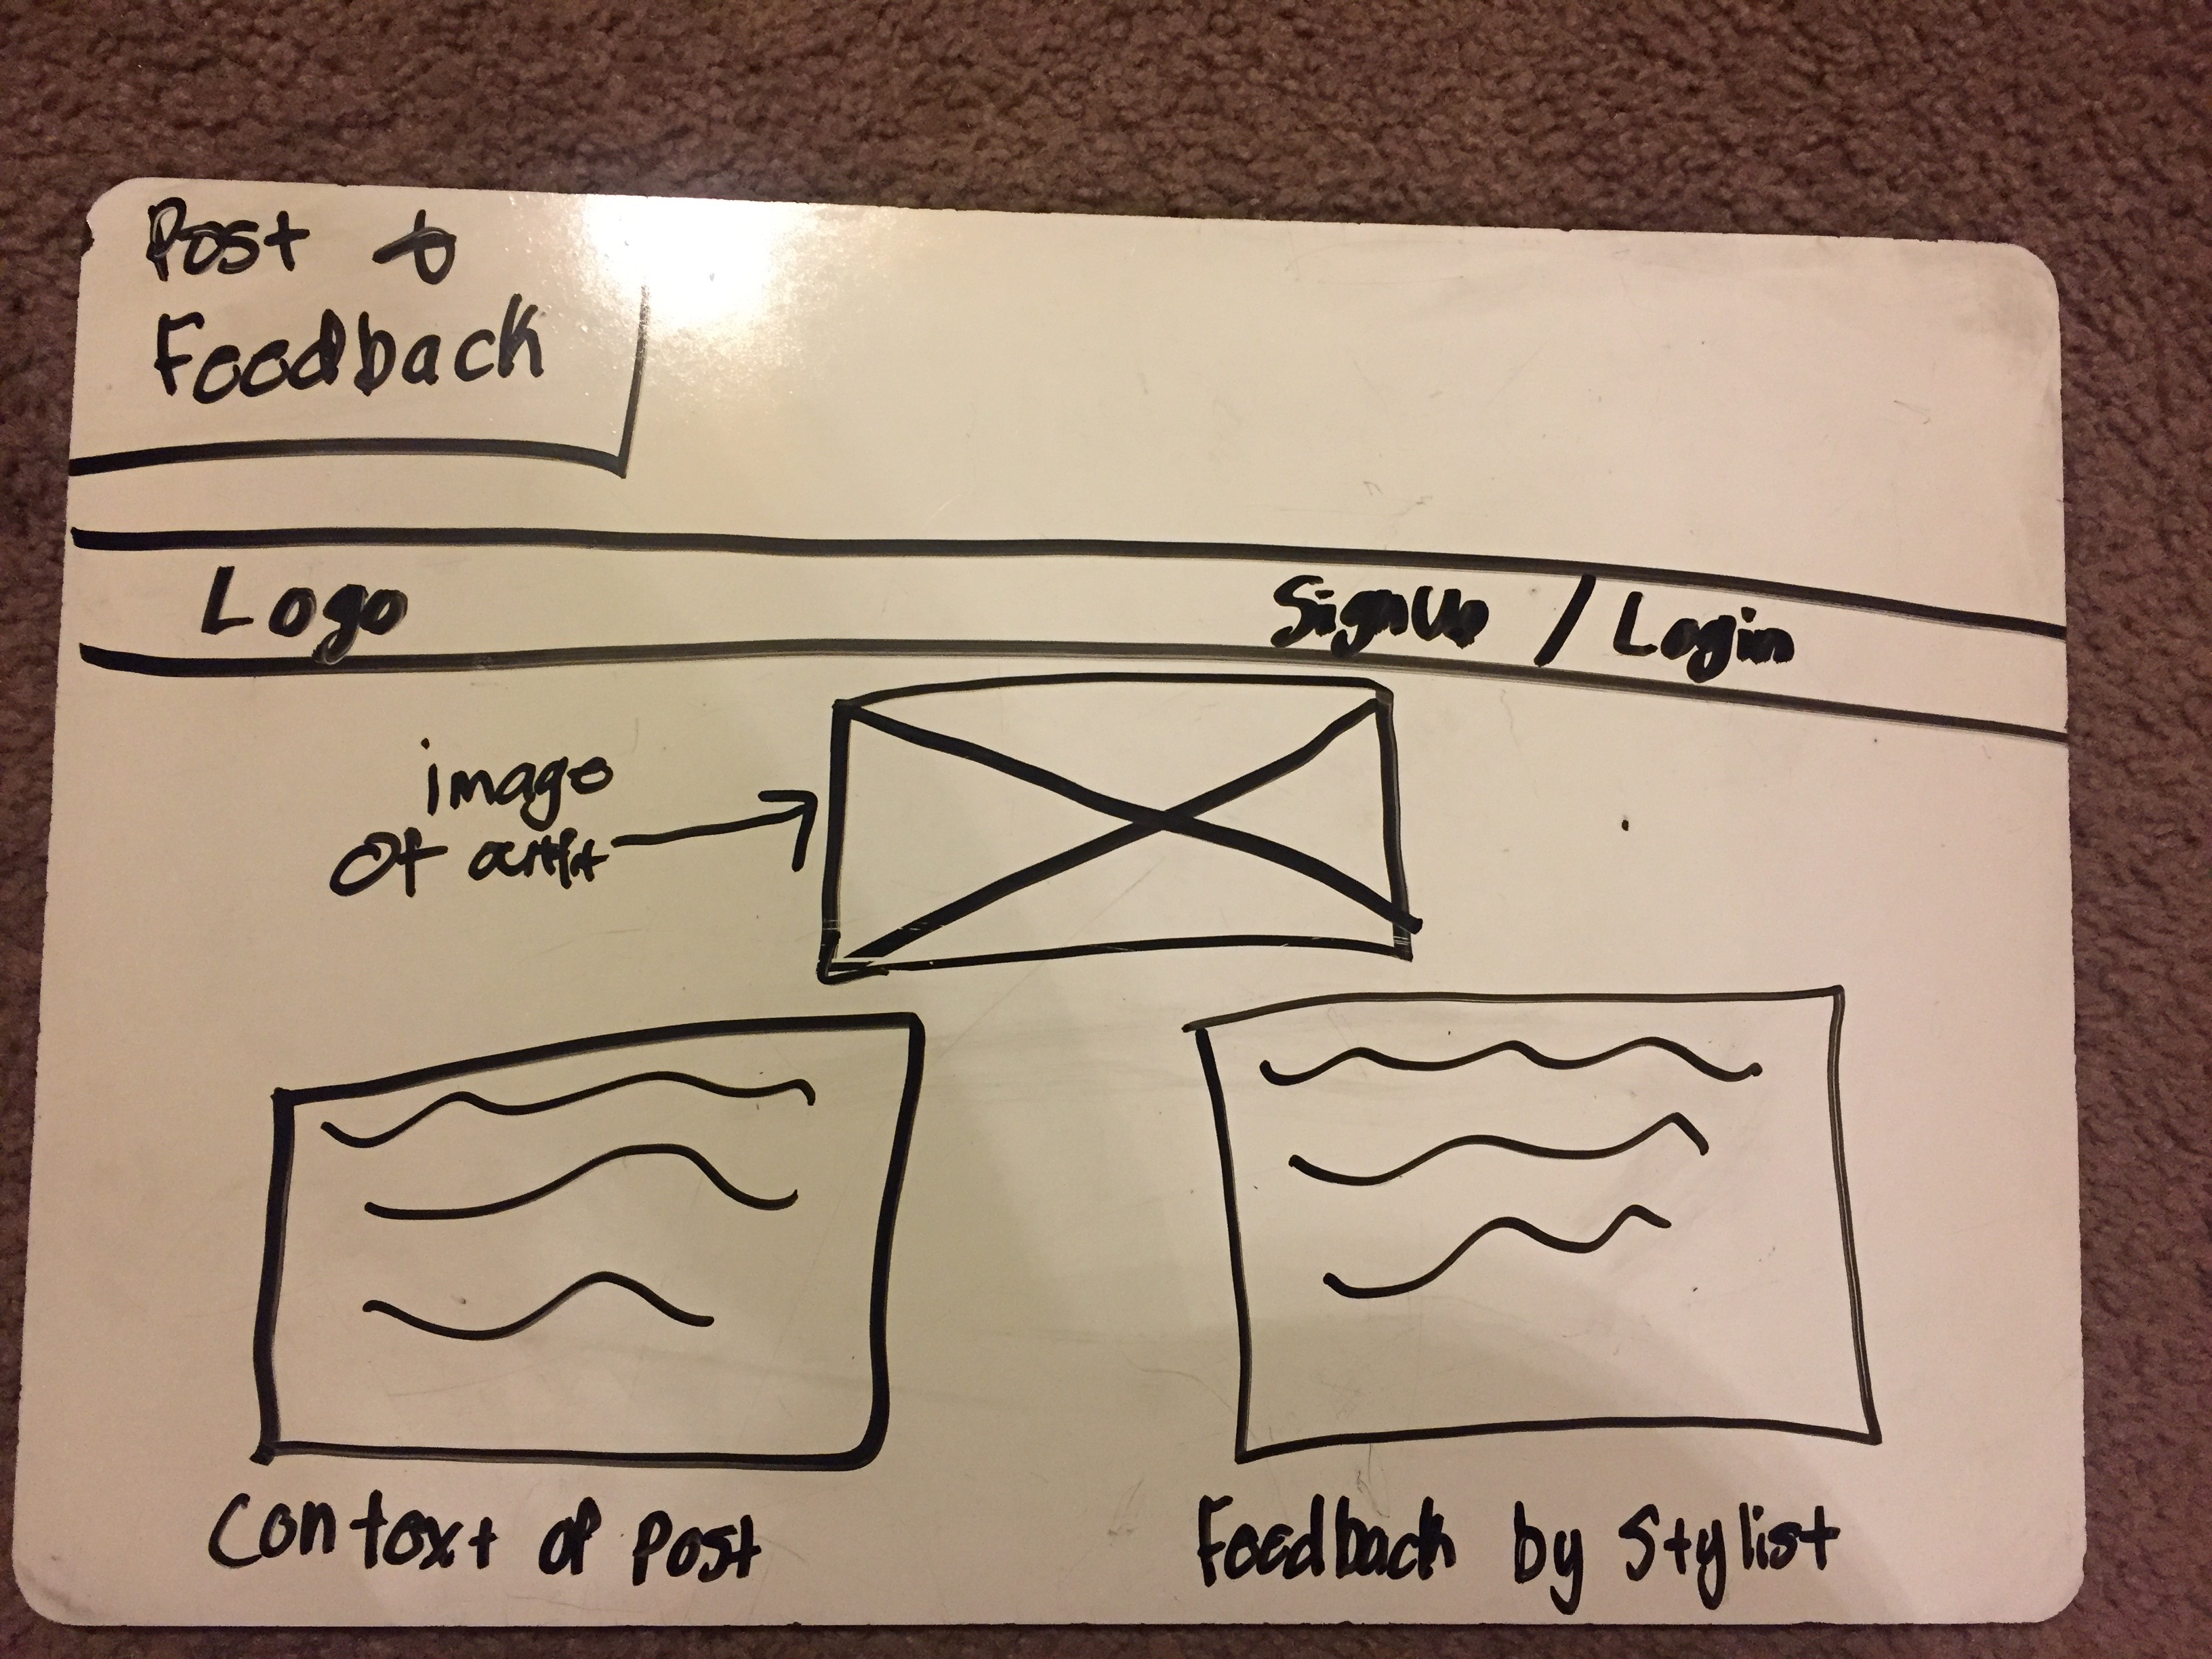 Post &
Feedback
Logo
SignUp / Login
image
of outfit
Context of Post
Feedback by Stylist